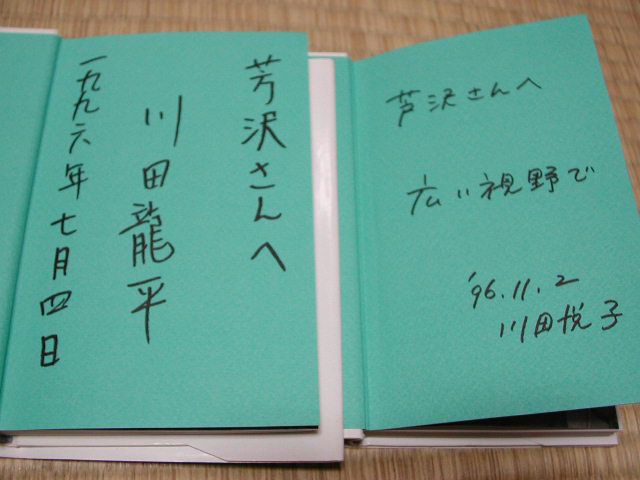 芳沢さんへ
川田龍平
一九九六年七月四日
芦沢さんへ
広い視野で
'96.11.2
川田悦子